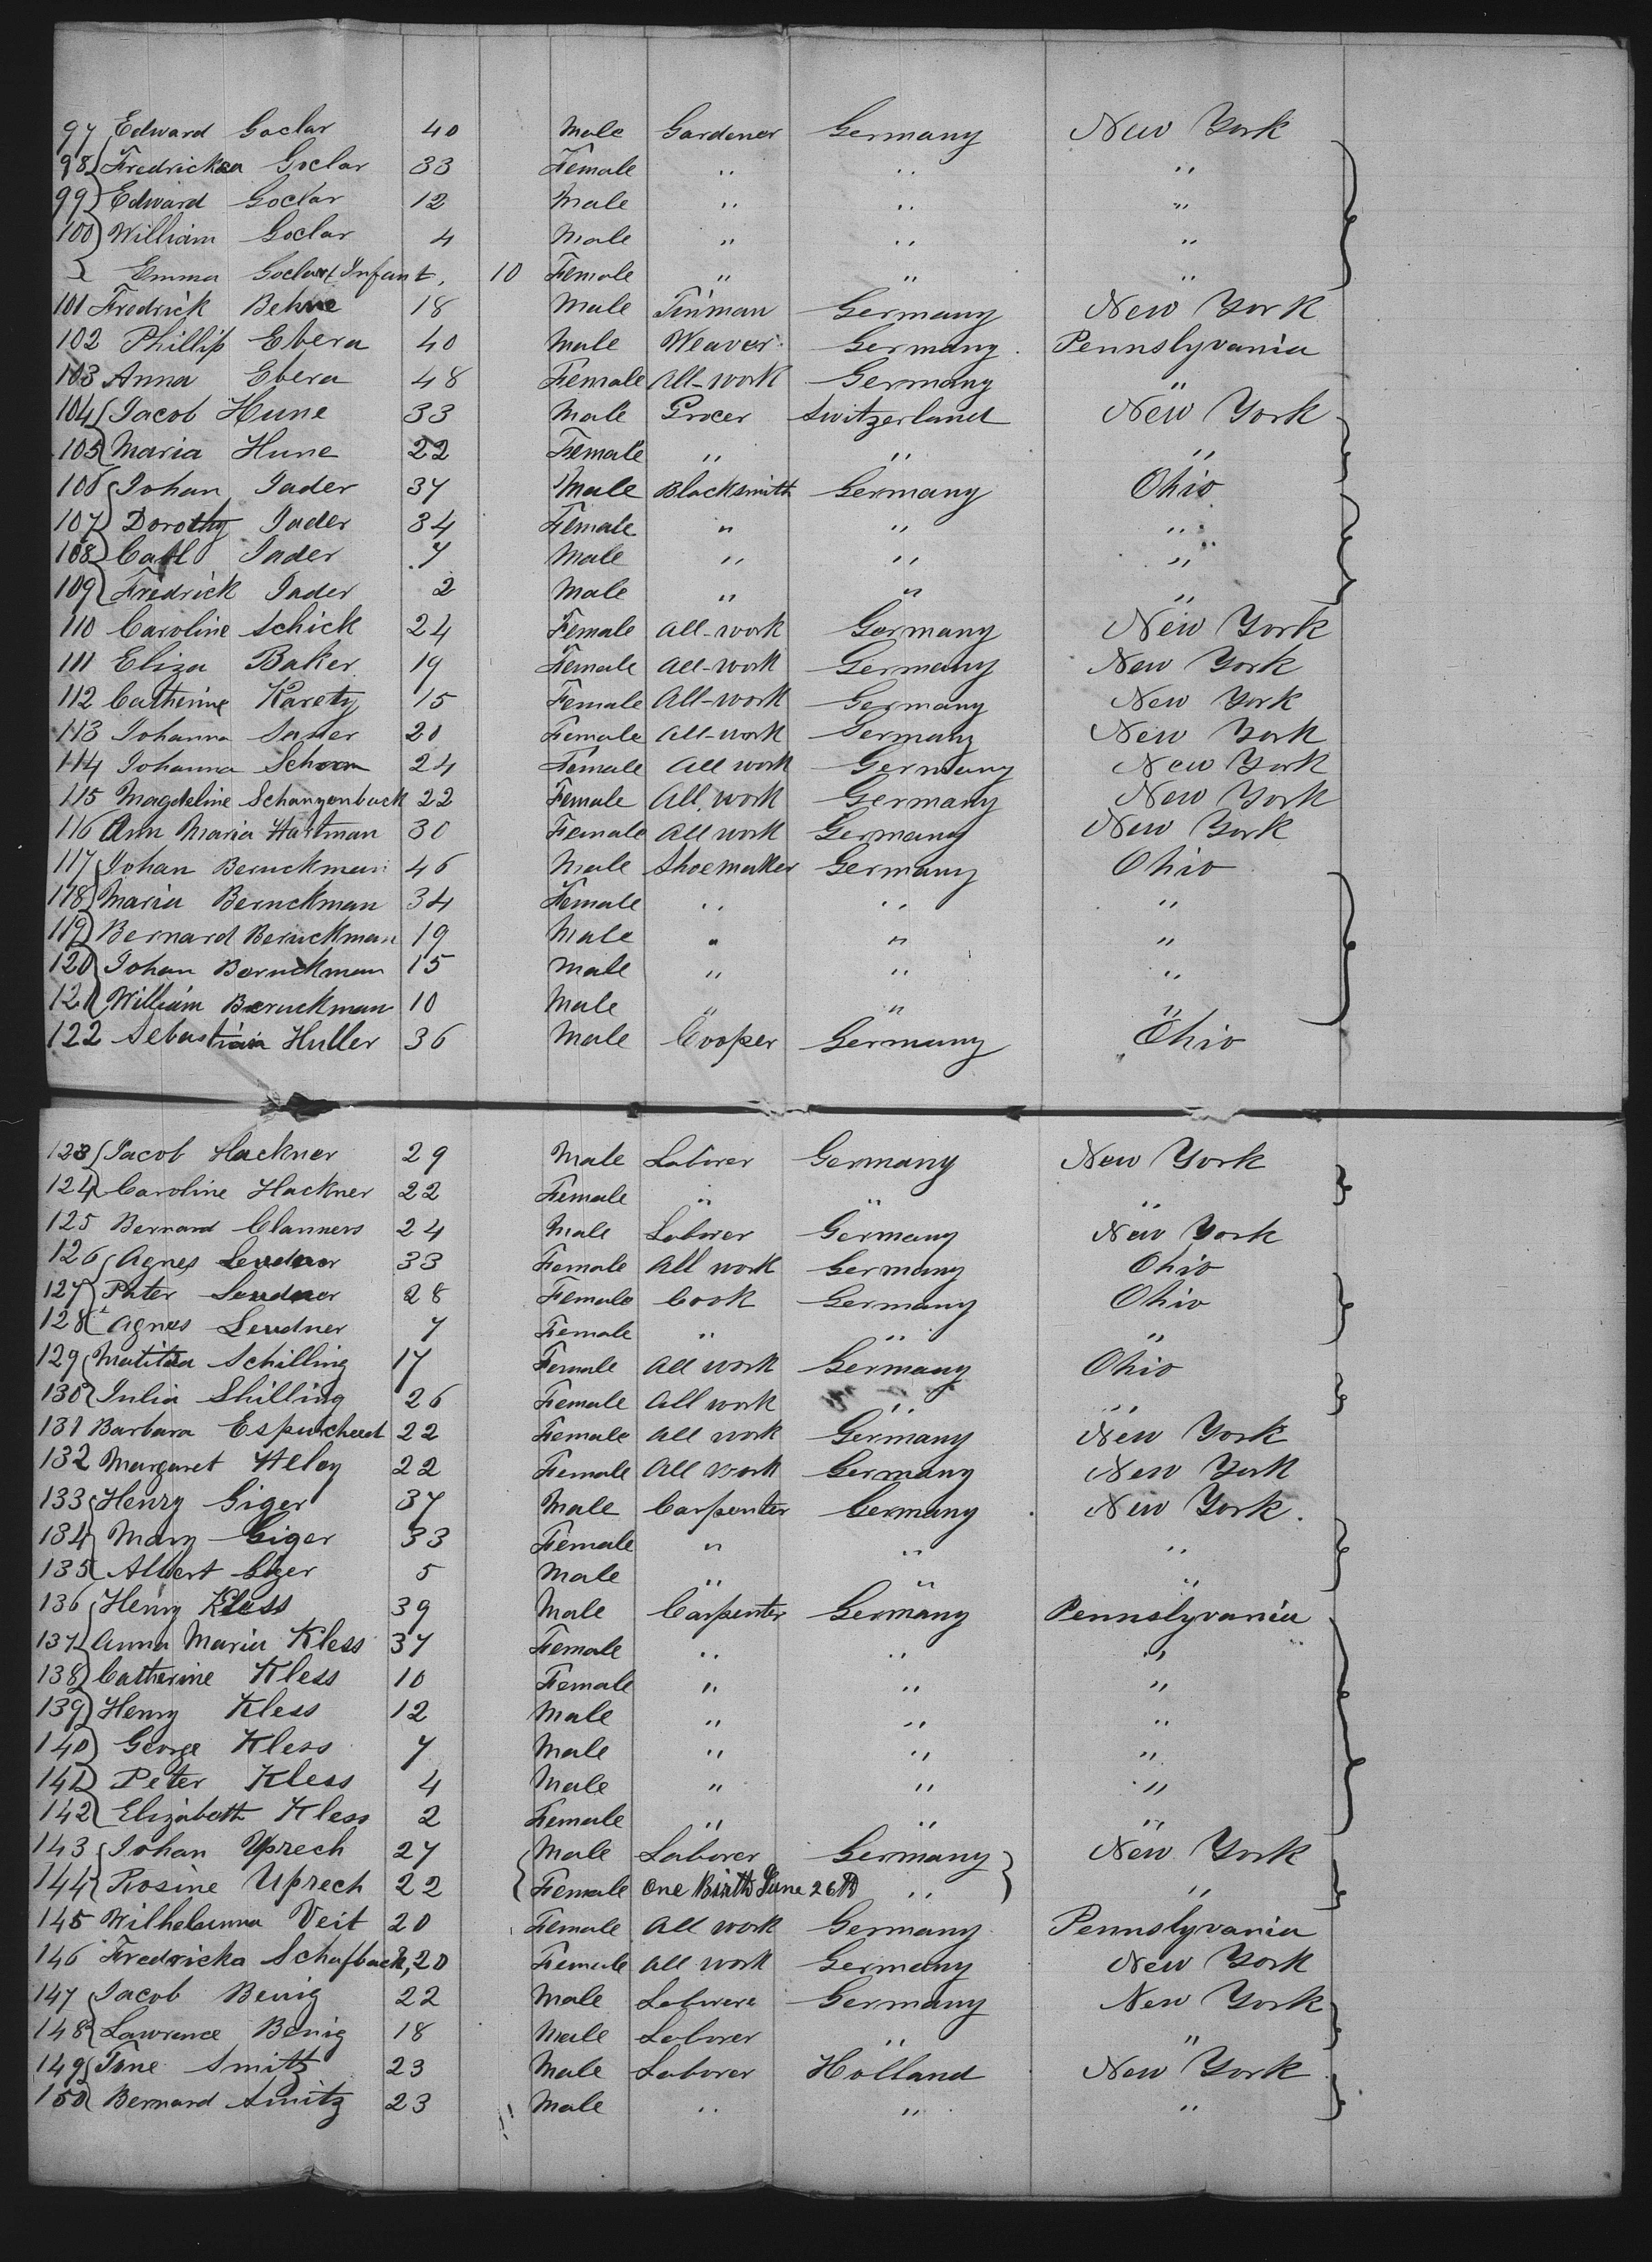 97 Edward Goclar 40 Male Gardener Germany New York
98 Fredricka Goclar 33 Female " " "
99 Edward Goclar 12 Male " " "
100 William Goclar 4 Male " " "
Emma Goclar Infant, 10 Female " " "
101 Fredrick Behne 18 Male Tinman Germany New York
102 Phillip Ebera 40 Male Weaver Germany Pennslyvania
103 Anna Ebera 48 Female All-work Germany "
104 Jacob Hune 33 Male Grocer Switzerland New York
105 Maria Hune 22 Female " " "
106 Johan Jader 37 Male Blacksmith Germany Ohio
107 Dorothy Jader 34 Female " " "
108 Carl Jader 7 Male " " "
109 Fredrick Jader 2 Male " " "
110 Caroline Schick 24 Female All-work Germany New York
111 Eliza Baker 19 Female All-work Germany New York
112 Catherine Karety 15 Female All-work Germany New York
113 Johanna Saner 20 Female All-work Germany New York
114 Johanna 24 Female All work Germany New York
115 Magdeline Schanzenback 22 Female All work Germany New York
116 Ann Maria Hartman 30 Female All work Germany New York
117 Johan Beruckman 46 Male Shoemaker Germany Ohio
118 Maria Beruckman 34 Female " " "
119 Bernard Beruckman 19 Male " " "
120 Johan Beruckman 15 Male " " "
121 William Beruckman 10 Male " " "
122 Sebastian Huller 36 Male Cooper Germany Ohio
123 Jacob Hackner 29 Male Laborer Germany New York
124 Caroline Hackner 22 Female " " "
125 Bernard Clanners 24 Male Laborer Germany New York
126 Agnes Leudner 33 Female All work Germany Ohio
127 Peter Leudner 28 Female Cook Germany Ohio
128 Agnes Leudner 7 Female " " "
129 Matilda Schilling 17 Female All work Germany Ohio
130 Julia Shilling 26 Female All work " "
131 Barbara 22 Female All work Germany New York
132 Margaret 22 Female All work Germany New York
133 Henry Giger 37 Male Carpenter Germany New York.
134 Mary Giger 33 Female " " "
135 Albert Giger 5 Male " " "
136 Henry Kless 39 Male Carpenter Germany Pennslyvania
137 Anna Maria Kless 37 Female " " "
138 Catherine Kless 10 Female " " "
139 Henry Kless 12 Male " " "
140 George Kless 7 Male " " "
141 Peter Kless 4 Male " " "
142 Elizabeth Kless 2 Female " " "
143 Johan Uprech 27 Male Laborer Germany New York
144 Rosine Uprech 22 Female One Birth June 26th " "
145 Wilhelmina Veit 20 Female All work Germany Pennslyvania
146 Fredricka Schafback, 20 Female All work Germany New York
147 Jacob Benig 22 Male Laborer Germany New York
148 Lawrence Benig 18 Male Laborer " "
149 Tone Smitz 23 Male Laborer Holland New York
150 Bernard Smitz 23 Male " " "